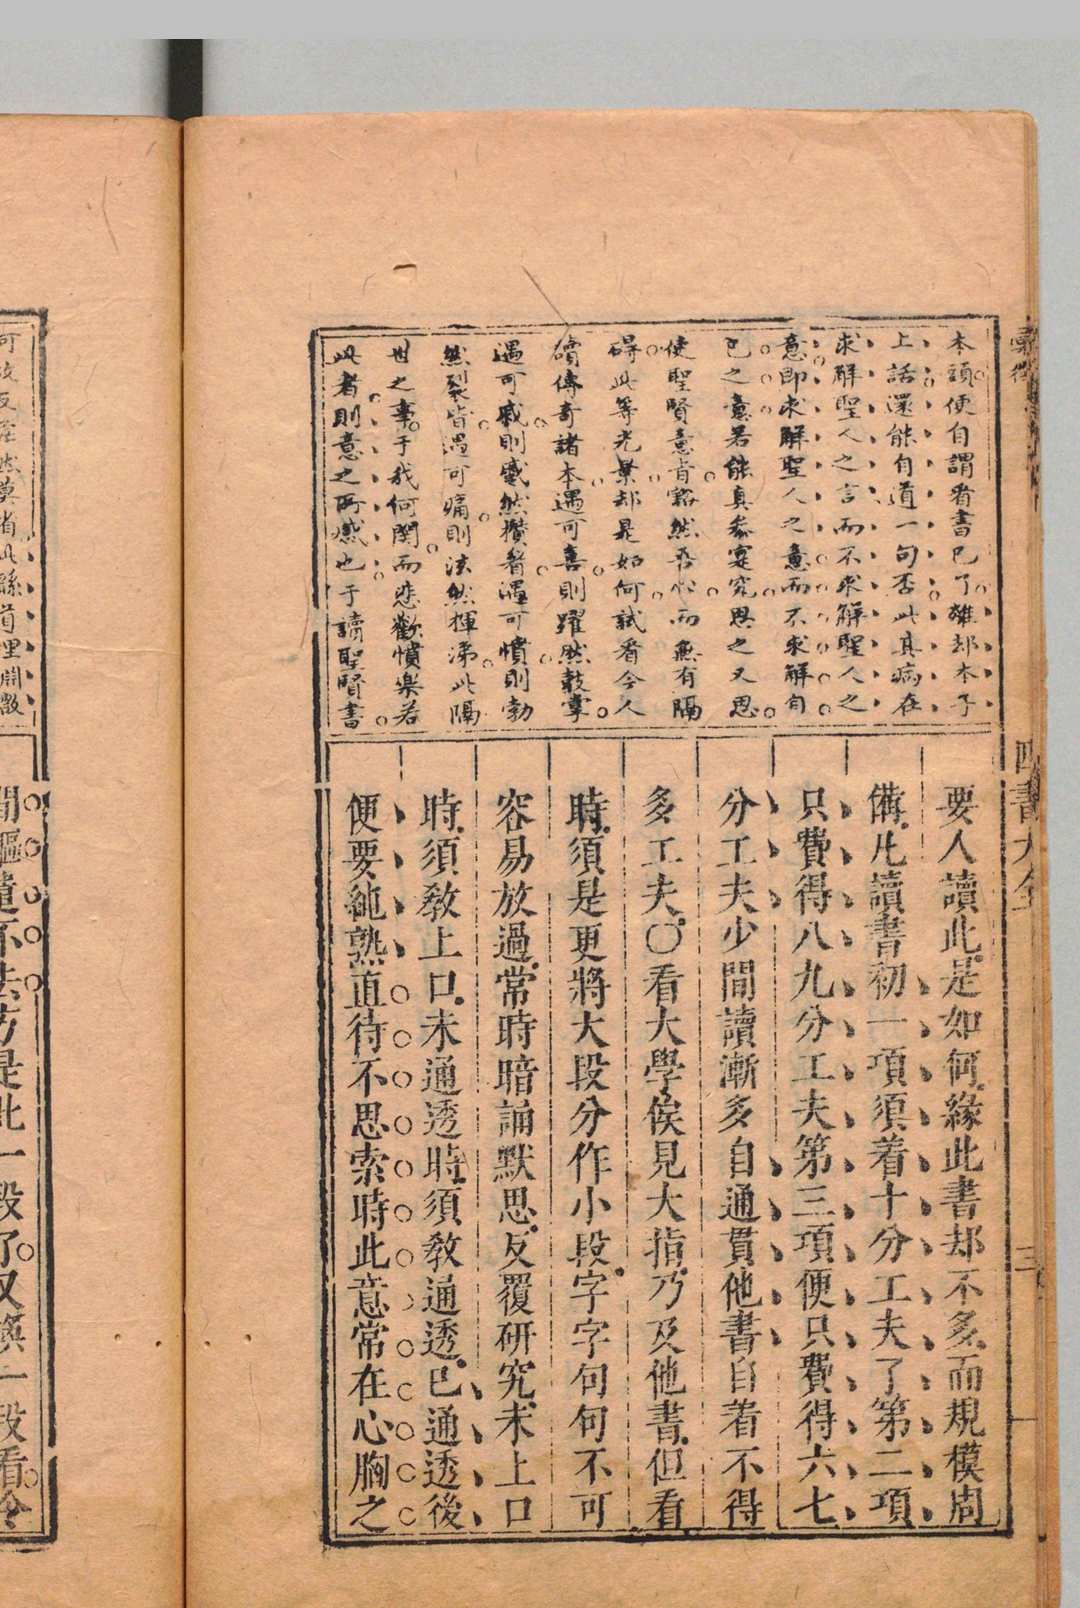 本頭便自謂看書已了雖却本子
上話還能自道一句否此其病在
求解聖人之言而不求解聖人之
意即求解聖人之意而不求解自
己之意若能真參寔究思之又思
使聖賢意旨豁然吾心而無有隔
碍此等光景却是如何試看今人
讀傳奇諸本遇可喜則躍然鼓掌
遇可戚則蹙然攢眷遇可憤則勃
然裂眥遇可痛則泫然揮涕此隔
世之事于我何関而悲歡憤楽若
此者則意之所感也于讀聖賢書
四書大全
三
要人讀此是如何緣此書却不多而規模周
備凡讀書初一項須着十分工夫了第二項
只費得八九分工夫第三項便只費得六七
分工夫少間讀漸多自通貫他書自着不得
多工夫○看大學俟見大指乃及他書但看
時須是更將大段分作小段字字句句不可
容易放過常時暗誦默思反覆研究未上口
時須教上口未通透時須教通透已通透後
便要純熟直待不思索時此意常在心胸之
間驅遣不去方是此一段了又換一段看令